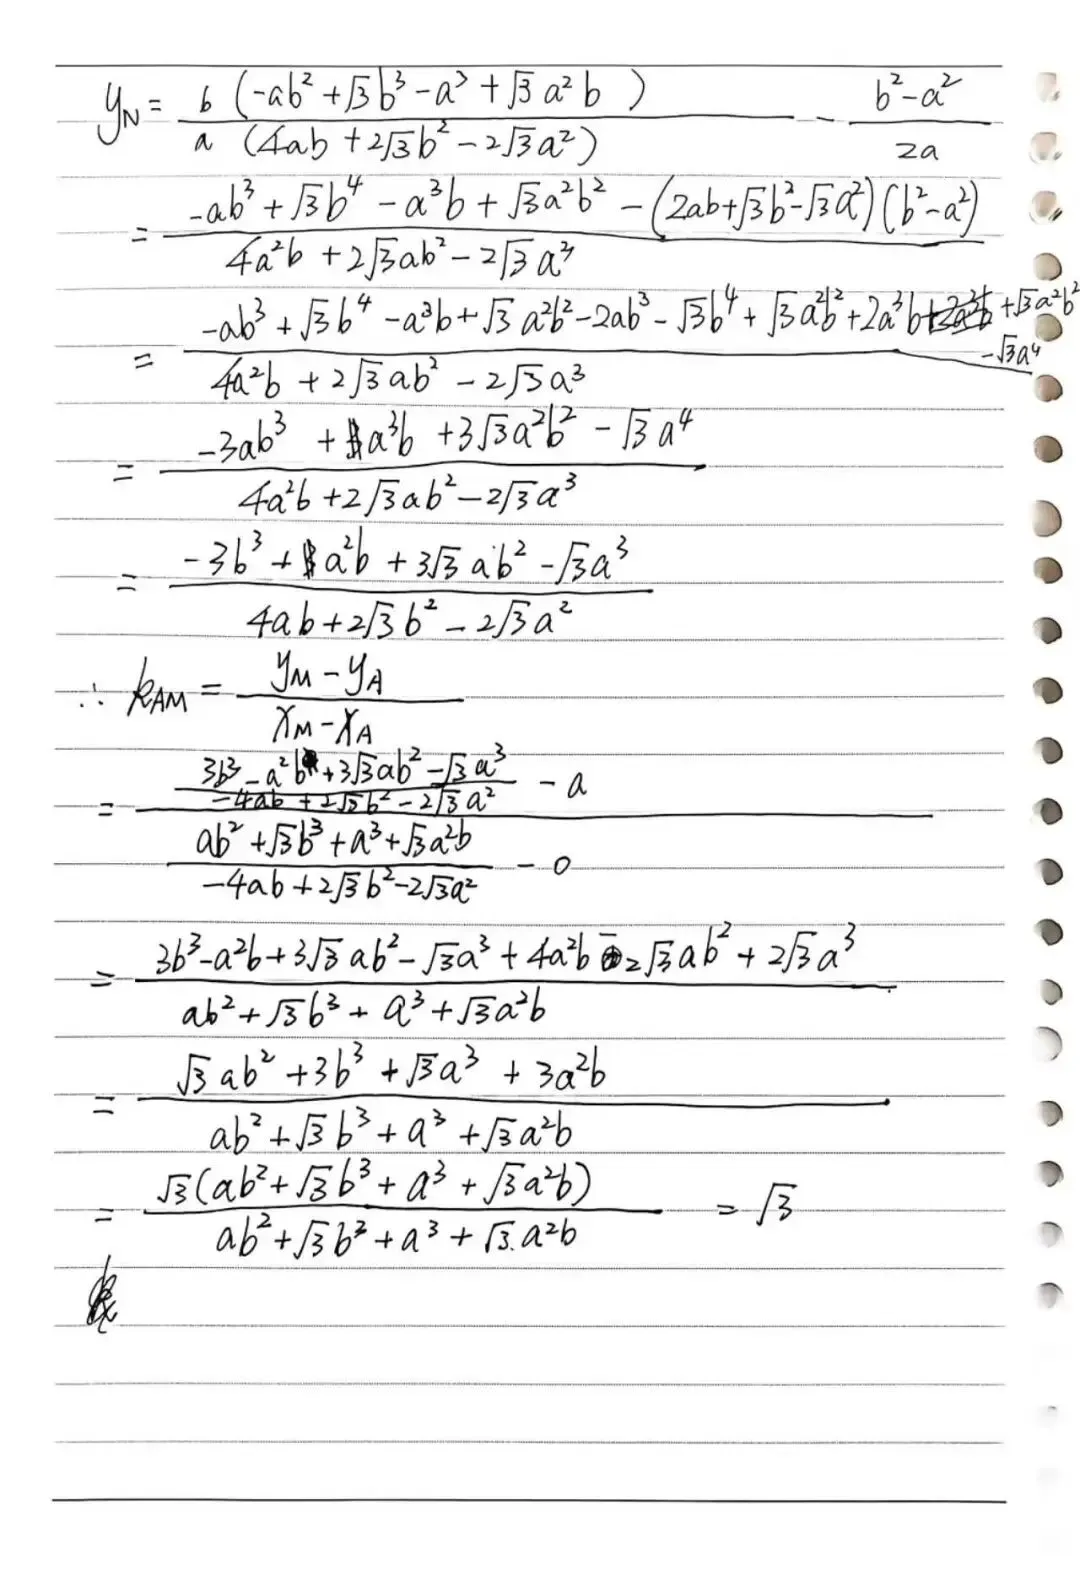 y_N = b(-ab²+√3b³-a³+√3a²b) / a(4ab+2√3b²-2√3a²) - (b²-a²)/2a
= (-ab³+√3b⁴-a³b+√3a²b²-(2ab+√3b²-√3a²)(b²-a²)) / (4a²b+2√3ab²-2√3a³)
= (-ab³+√3b⁴-a³b+√3a²b²-2ab³-√3b⁴+√3a²b²+2a³b+√3a²b²-√3a⁴) / (4a²b+2√3ab²-2√3a³)
= (-3ab³+a³b+3√3a²b²-√3a⁴) / (4a²b+2√3ab²-2√3a³)
= (-3b³+a²b+3√3ab²-√3a³) / (4ab+2√3b²-2√3a²)
∴ k_AM = (y_M-y_A) / (x_M-x_A)
= ((3b³-a²b+3√3ab²-√3a³)/(-4ab+2√3b²-2√3a²) - a) / ((ab²+√3b³+a³+√3a²b)/(-4ab+2√3b²-2√3a²) - 0)
= (3b³-a²b+3√3ab²-√3a³+4a²b-2√3ab²+2√3a³) / (ab²+√3b³+a³+√3a²b)
= (√3ab²+3b³+√3a³+3a²b) / (ab²+√3b³+a³+√3a²b)
= √3(ab²+√3b³+a³+√3a²b) / (ab²+√3b³+a³+√3a²b) = √3